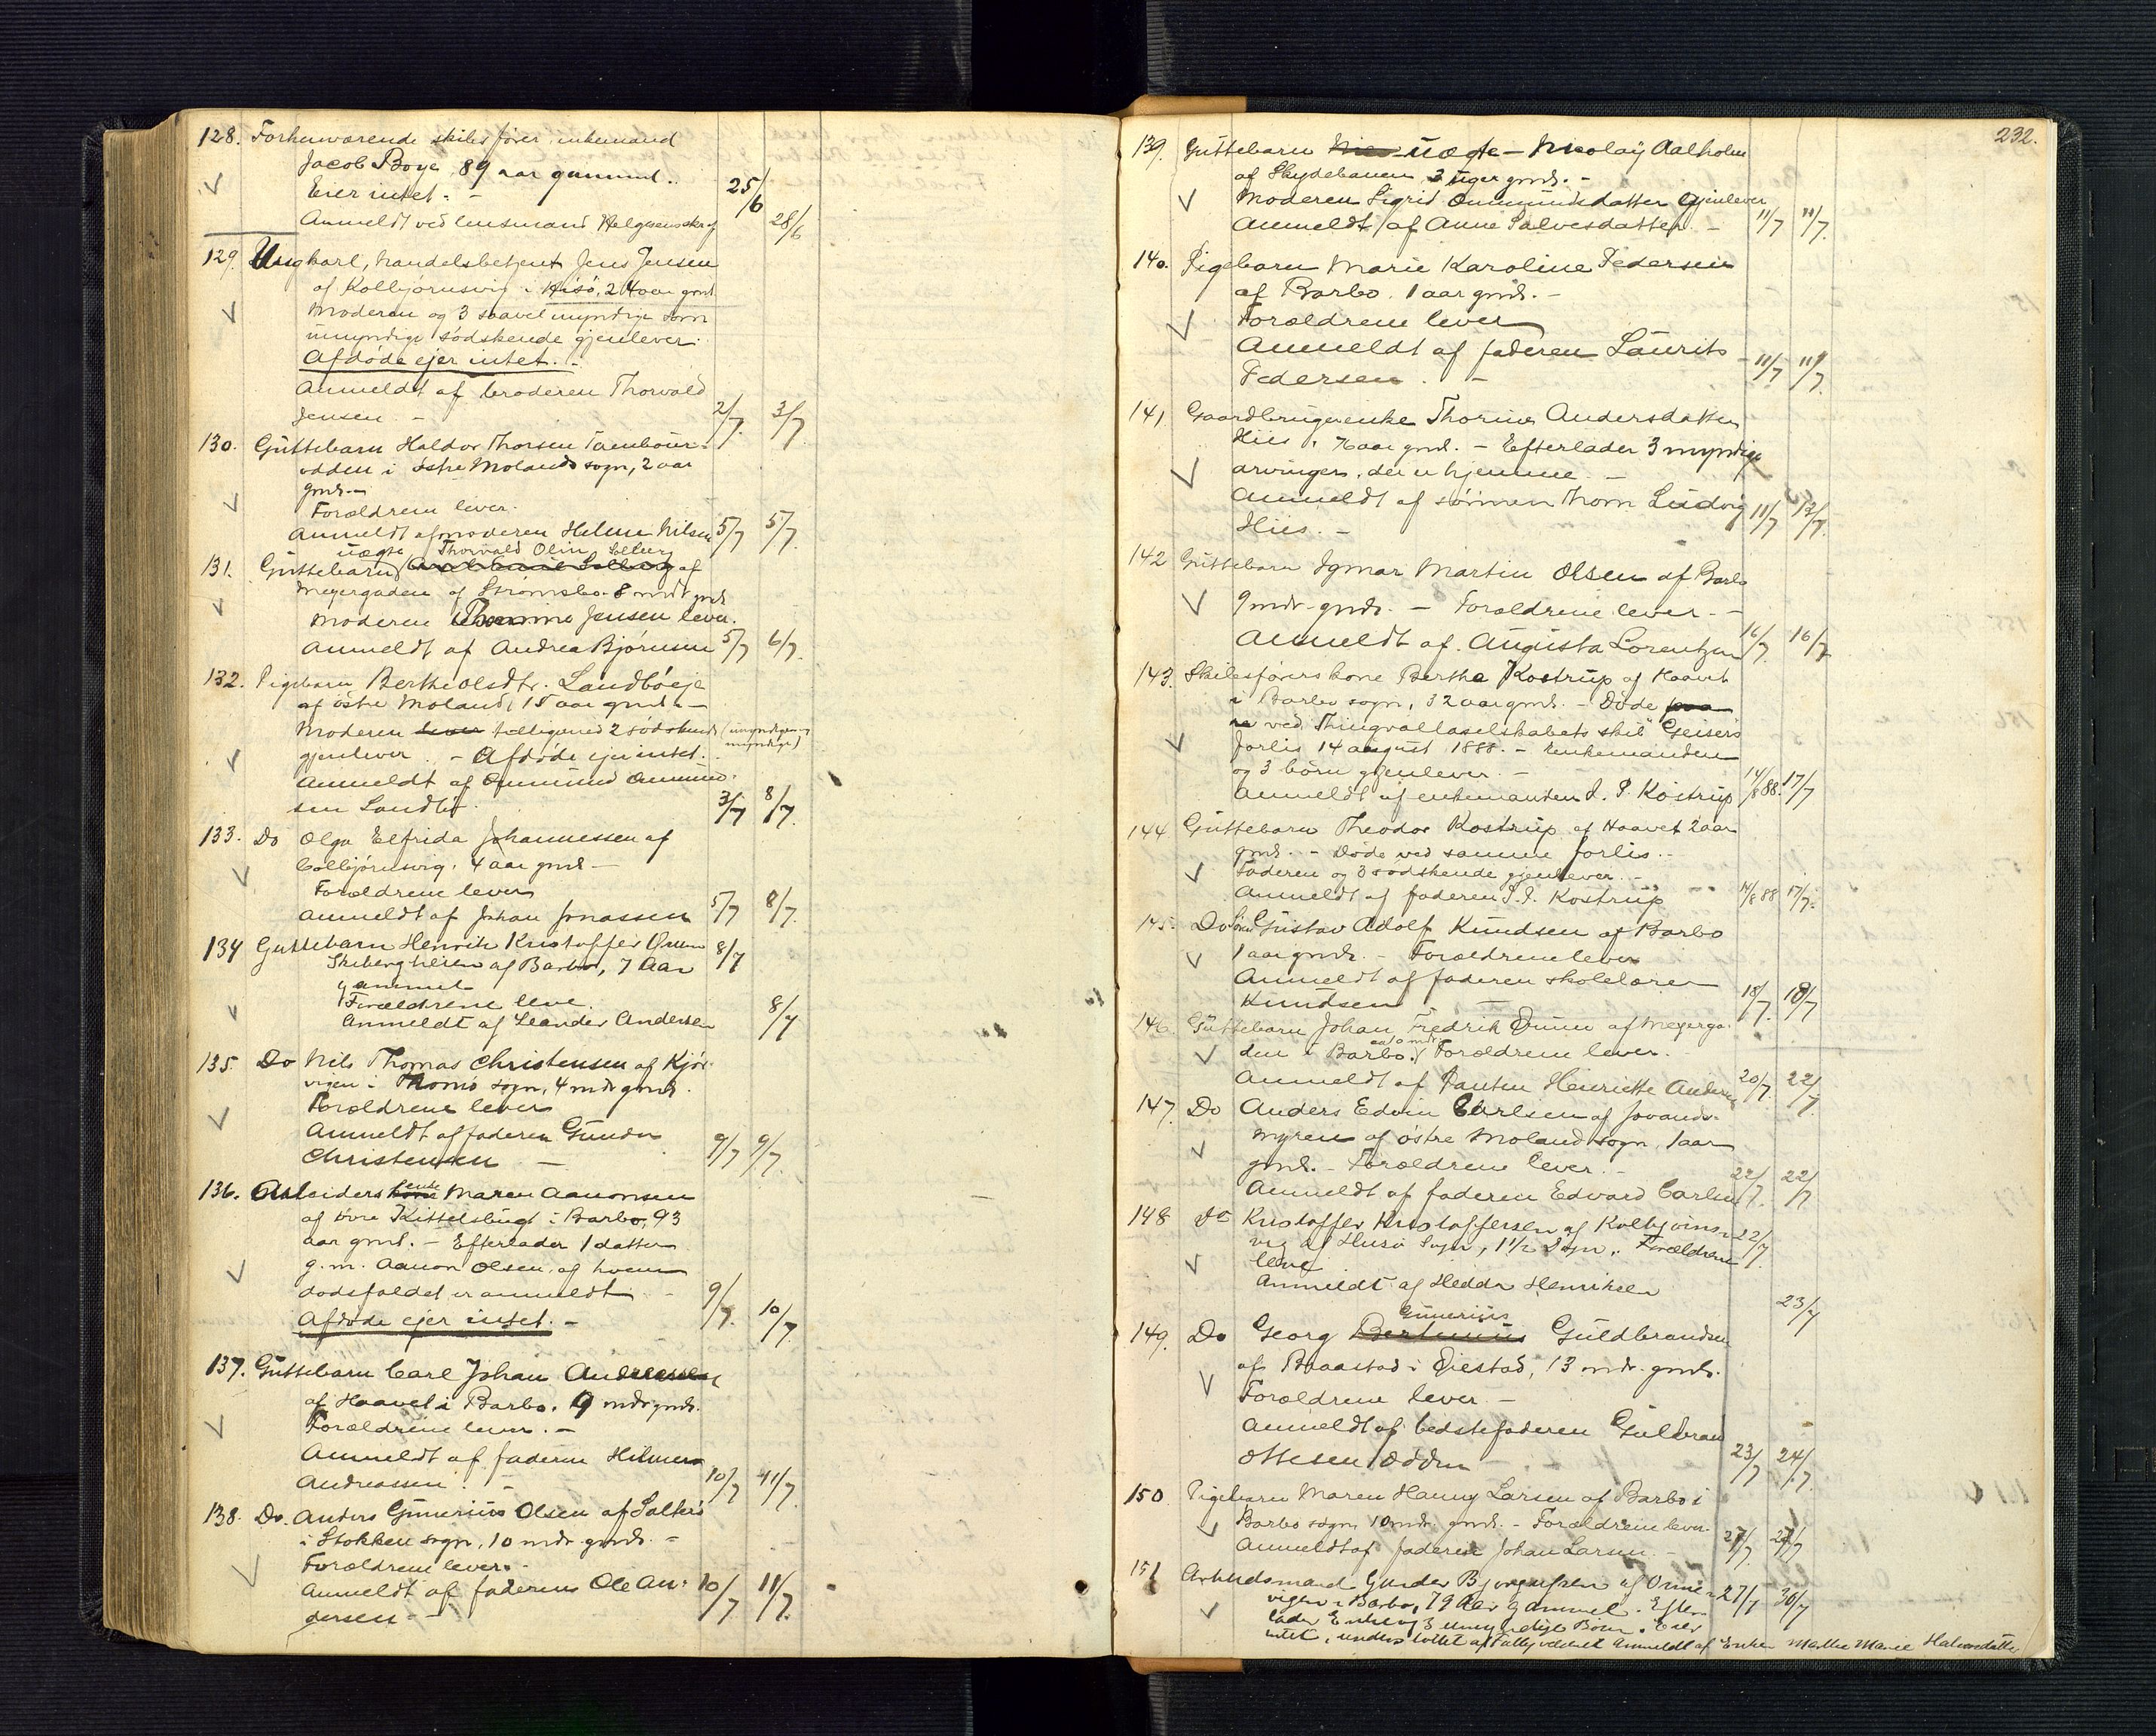 128. Forhenværende skibsfører, enkemand
Jacob Boye, 89 aar gammel..
Eier intet. -
25/6
Anmeldt ved lensmand Helgesens skr. 28/6
129. Ungkarl, handelsbetjent Jens Jensen
af Kolbjørnsvig i Hisø, 24 aar gml.
Moderen og 3 saavel myndige som
umyndige sødskende gjenlever.
Afdøde ejer intet. -
Anmeldt af broderen Thorvald
Jensen - 2/7. 3/7
130. Guttebarn Haldor Thorsen Tambour-
odden i østre Molands sogn, 2 aar
gml. -
Forældrene lever.
Anmeldt af moderen Helene Nilsen 5/7 5/7.
uægte Thorvald Olin Solberg
131. Guttebarn af
Meyergaden af Strømsbo. 8 mdr gml.
Moderen Thomine Jensen lever.
Anmeldt af Andrea Bjørnsen 5/7 6/7.
132. Pigebarn Berthe Olsdtr. Landbøeje
af østre Moland, 15 aar gml. -
Moderen lever tilligemed 2 sødskende (umyndige og
myndige)
gjenlever. - Afdøde ejer intet.
Anmeldt af Ommund Ommund-
sen Landbø. 3/7 8/7.
133. Do Olga Elfrida Johannessen af
Colbjørnsvig. 4 aar gml. -
Forældrene lever
Anmeldt af Johan Jonassen 5/7 8/7.
134 Guttebarn Henrik Kristoffer 8/7
af Barbo, 7 Aar
gammel
Forældrene leve.
Anmeldt af Leander Andersen 8/7
135. Do Nils Thomas Christensen af Kjør-
vigen i Tromø sogn, 4 mdr gml.
Forældrene lever
Anmeldt af faderen Gunder
Christensen - 9/7 9/7.
136. Arbeiders enke Maren Aanonsen
af øvre Kittelsbugt i Barbo, 93
aar gml. - Efterlader 1 datter
g. m. Aanon Olsen, af hvem
dødsfaldet er anmeldt - 9/7.
Afdøde ejer intet. - 10/7.
137. Guttebarn Carl Johan Andreassen
af Haavet i Barbo. 9 mdr gml.
Forældrene lever. -
Anmeldt af faderen Hilmer
Andreassen. - 10/7 11/7.
138. Do. Anders Gunerius Olsen af Salterø
i Stokken sogn, 10 mdr. gml. -
Forældrene lever. -
Anmeldt af faderen Ole An- 10/7 11/7.
dersen -
232.
139. Guttebarn uægte - Nicolay Aalholm
af Skydebanen 3 uger gml. -
Moderen Sigrid Ommundsdatter gjenlever
Anmeldt af Anne Salvesdatter - 11/7 11/7.
140. Pigebarn Marie Karoline Pedersen
af Barbo. 1 aar gml. -
Forældrene lever
Anmeldt af faderen Laurits
Pedersen. - 11/7 11/7.
141. Gaardbrugerenke Thorine Andersdatter
Hiis, 76 aar gml. - Efterlader 3 myndige
arvinger, der er hjemme. -
Anmeldt af sønnen Thom Ludvig 11/7 12/7.
Hiis. -
142 Guttebarn Igmar Martin Olsen af Barbo
9 mdr. gml. - Forældrene lever. -
Anmeldt af. Augusta Lorentzen 16/7. 16/7
143. Skibsførers kone Berthe Kostrup af Haavet
i Barbo sogn, 32 aar gml. - Døde
ved Thingvallaselskabets skib "Geisers"
forlis 14 august 1888. - Enkemanden
og 3 børn gjenlever. -
Anmeldt af enkemanden I. P. Kostrup 14/8 88. 17/7
144 Guttebarn Theodor Kostrup af Haavet 2 aar
gml. - Døde ved samme forlis. -
Faderen og 3 sødskende gjenlever. -
Anmeldt af faderen I. P. Kostrup 14/8 88 17/7.
145. Do Gustav Adolf Knudsen af Barbo
1 aar gml. - Forældrene lever
Anmeldt af faderen skolelærer
Knudsen - 18/7. 18/7
146. Guttebarn Johan Fredrik Dunn af Meyerga-
den i Barbo. Forældrene lever.
Anmeldt af Tanten Henriette Andersen 20/7. 22/7
147. Do Anders Edvin Carlsen af
myren af østre Moland sogn, 1 aar
gml. - Forældrene lever. -
Anmeldt af faderen Edvard Carlsen 22/7. 22/7
148 Do Kristoffer Kristoffersen af Kolbjørns- 22/7.
vig af Hisø Sogn, 1½ Døgn. Forældrene
leve
Anmeldt af Hedda Henriksen
23/7
Gunerius
149. Do Georg Bertinius Guldbrandsen
af Braastad i Øiestad, 13 mdr. gml.
Forældrene lever -
Anmeldt af bedstefaderen Gulbrand
Ottesen Ødden 23/7 24/7.
150 Pigebarn Maren Hanny Larsen af Barbo i
Barbo sogn, 10 mdr. gml. - Forældrene lever.
Anmeldt af faderen Johan Larsen. - 27/7. 27/7
151 Arbeidsmand Gunder af 27/7 30/7
vigen i Barbo, 79 Aar gammel. Efter-
lader Enke og 3 umyndige Børn. Eier
intet, understøttet af Fattigvæsenet Anmeldt af Enken Marthe Marie Halvorsdatter